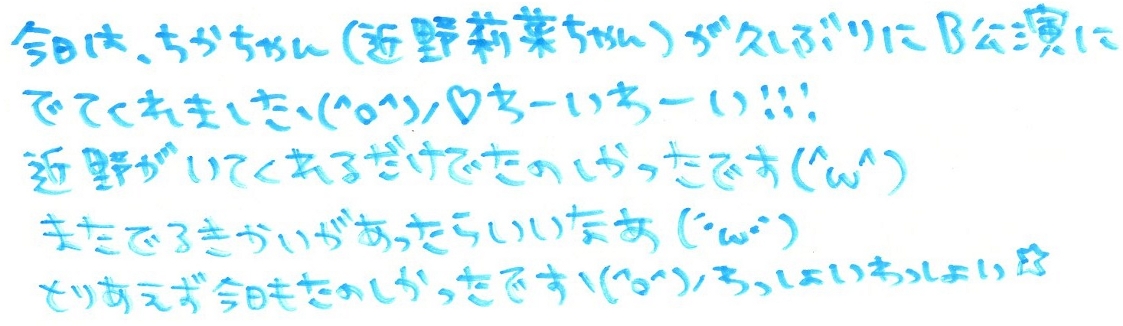 今日は、ちかちゃん(近野莉菜ちゃん)が久しぶりにB公演に
でてくれました\(^o^)/♡わーいわーい!!!
近野がいてくれるだけでたのしかったです(^ω^)
またでるきかいがあったらいいなあ(´･ω･`)
とりあえず今日もたのしかったです\(^o^)/わっしょいわっしょい☆